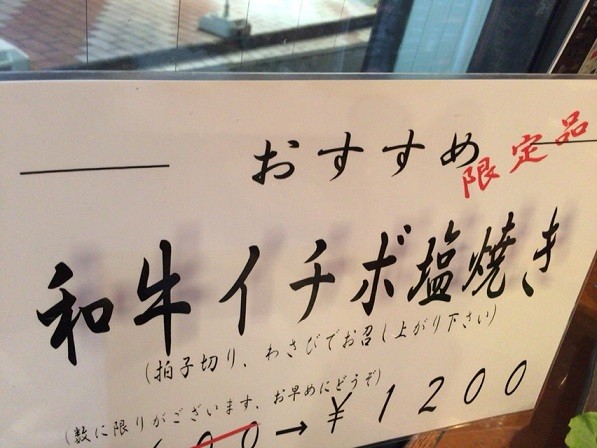 おすすめ
限定品
和牛イチボ塩焼き
(拍子切り、わさびでお召し上がり下さい)
(数に限りがございます、お早めにどうぞ)
→¥1200